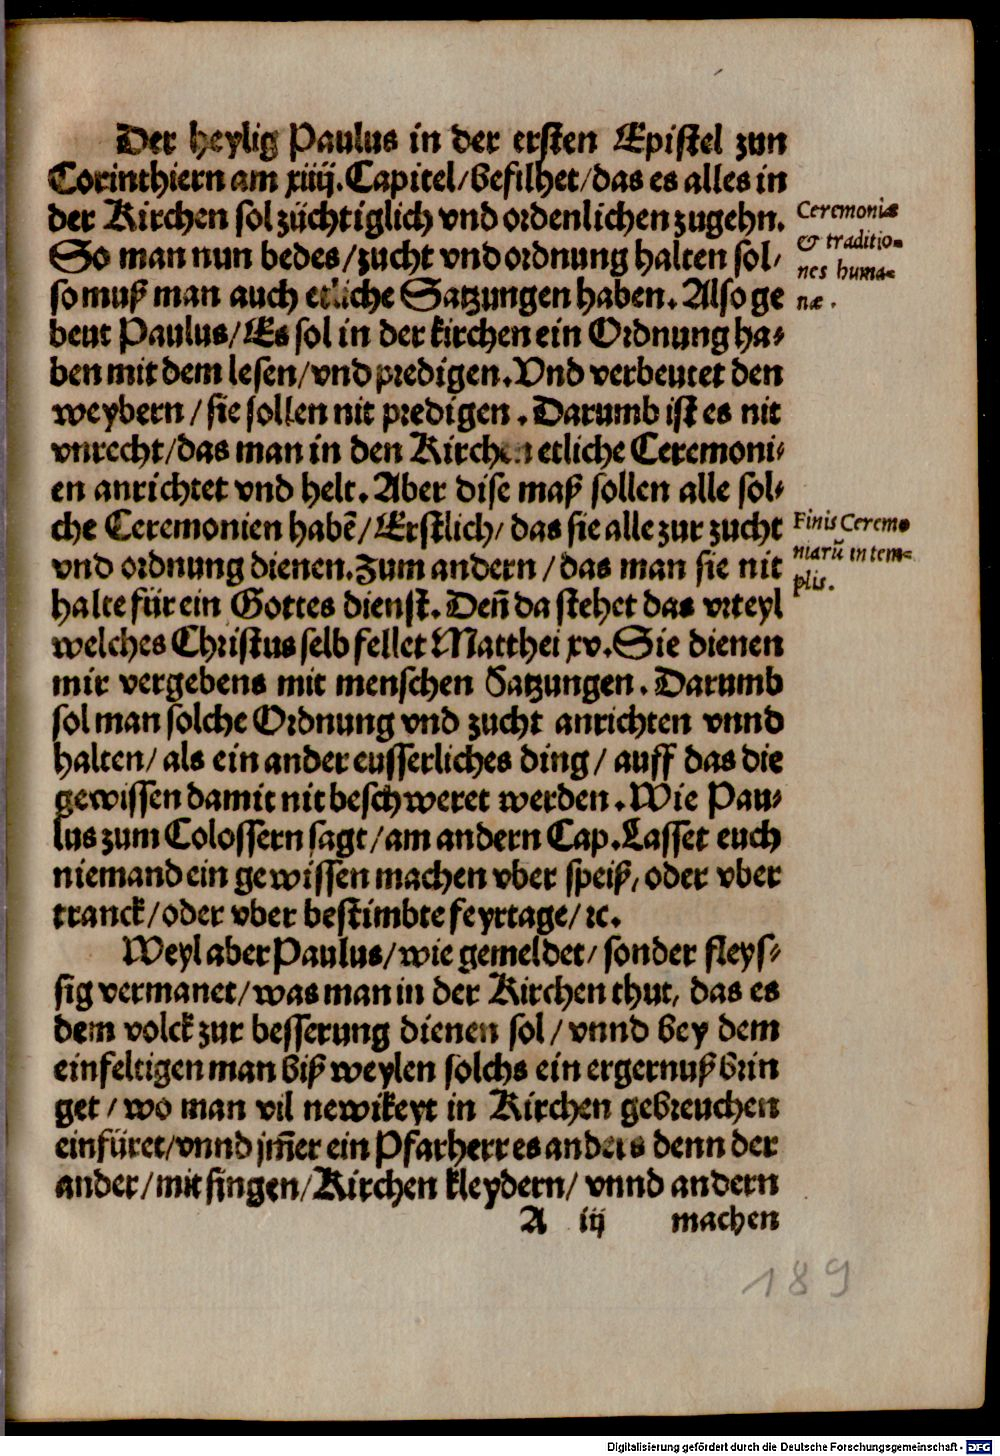 Der heylig Paulus in der ersten Epistel zun
Corinthiern am xiiij. Capitel/befilhet/das es alles in
der Kirchen sol züchtiglich vnd ordenlichen zugehn.
So man nun bedes/zucht vnd ordnung halten sol/
so muß man auch etliche Satzungen haben. Also ge
beut Paulus/Es sol in der kirchen ein Ordnung ha-
ben mit dem lesen/vnd predigen. Vnd verbeutet den
weybern/sie sollen nit predigen. Darumb ist es nit
vnrecht/das man in den Kirchen etliche Ceremoni-
en anrichtet vnd helt. Aber dise maß sollen alle sol-
che Ceremonien habē/Erstlich/das sie alle zur zucht
vnd ordnung dienen. Zum andern/das man sie nit
halte für ein Gottes dienst. Deñ da stehet das vrteyl
welches Christus selb fellet Matthei xv. Sie dienen
mir vergebens mit menschen Satzungen. Darumb
sol man solche Ordnung vnd zucht anrichten vnnd
halten/als ein ander eusserliches ding/auff das die
gewissen damit nit beschweret werden. Wie Pau-
lus zum Colossern sagt/am andern Cap. Lasset euch
niemand ein gewissen machen vber speiß/oder vber
tranck/oder vber bestimbte feyrtage/ꝛc.
Weyl aber Paulus/wie gemeldet/sonder fleys-
sig vermanet/was man in der Kirchen thut, das es
dem volck zur besserung dienen sol/vnnd bey dem
einfeltigen man biß weylen solchs ein ergernuß brin
get/wo man vil newikeyt in Kirchen gebreuchen
einfüret/vnnd jm̃er ein Pfarherr es anders denn der
ander/mit singen/Kirchen kleydern/vnnd andern
A iij machen
Ceremoniæ
& traditio-
nes huma-
næ.
Finis Ceremo
niarū in tem-
plis.
189
Digitalisierung gefördert durch die Deutsche Forschungsgemeinschaft - DFG